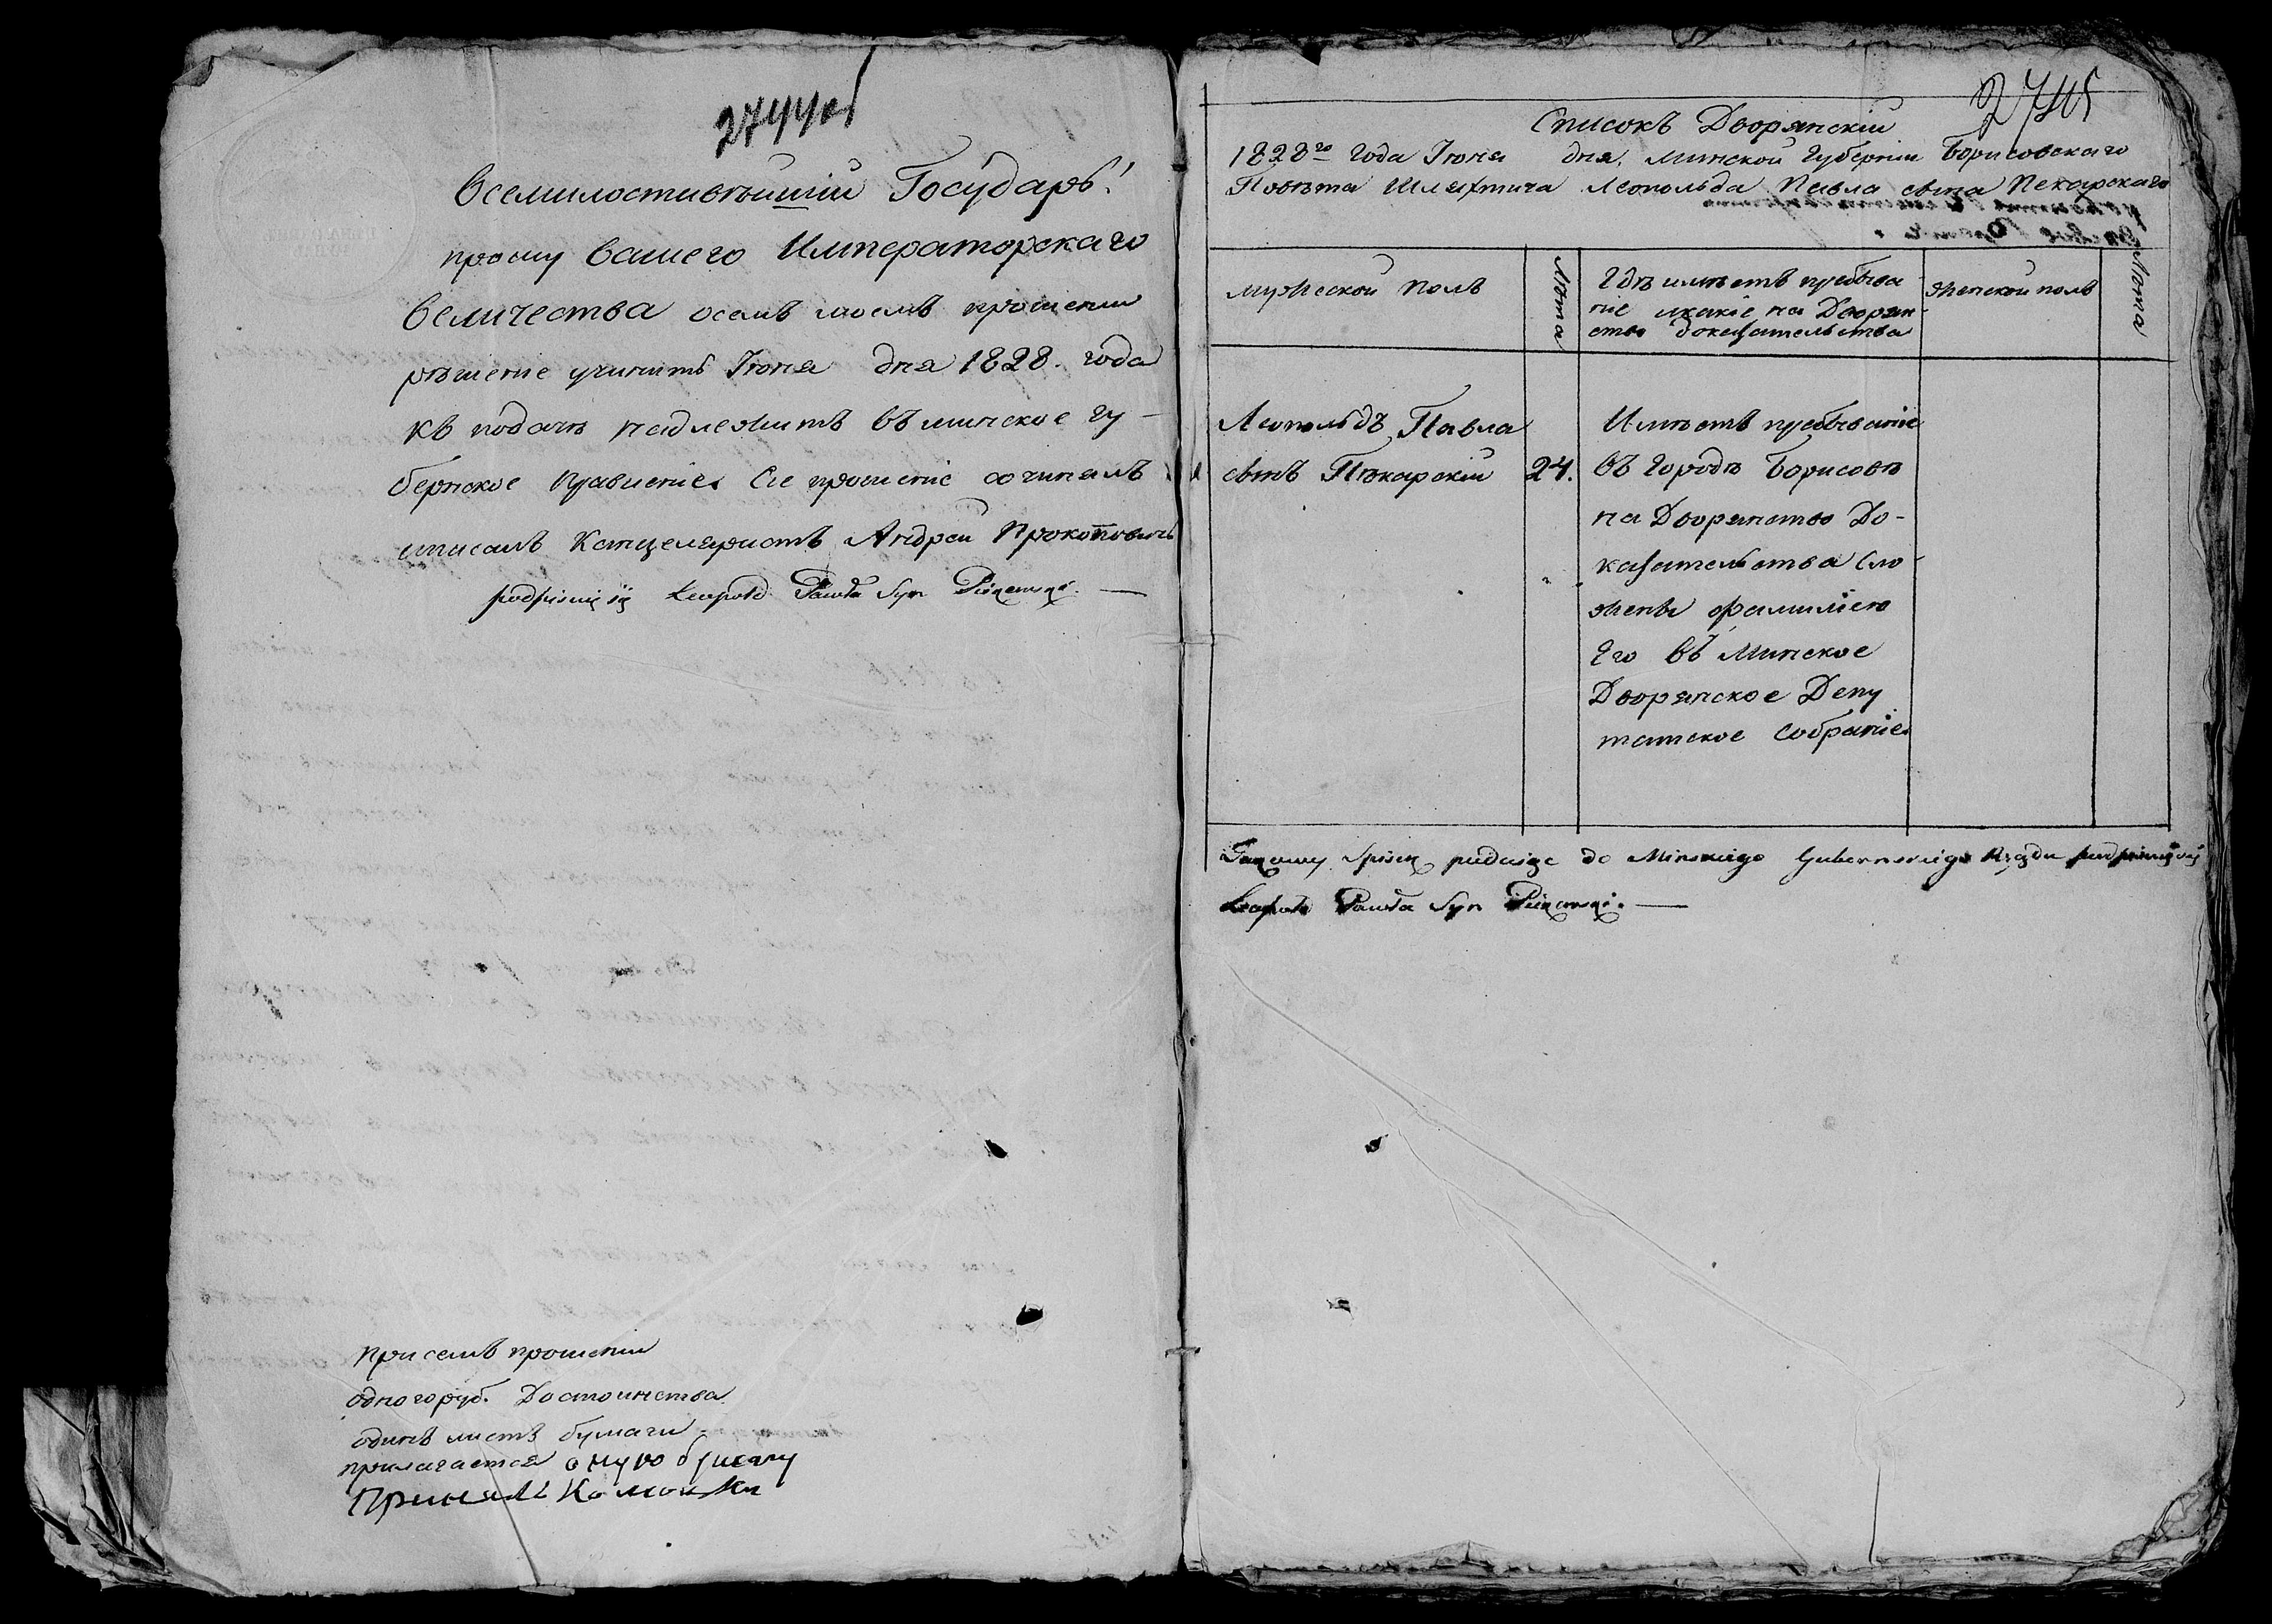 2744об
Всемилостивѣйшій Государь!
прошу Вашего Императорскаго
Величества осемъ моемъ прошеніи
рѣшеніе учинить Іюня дня 1828. года
къ подачѣ надлежитъ въ минское гу-
бернское правленіе. Сіе прошеніе сочинялъ
иписалъ Канцеляристъ Андрей Прокоповичь
podpisuię się Leopold Pawła Syn Piekarski.
При семъ прошеніи
одного руб. Достоинства
одинъ листъ бумаги
прилагается оную бумагу
Принялъ
2745
Списокъ Дворянскій
1828го года Іюня дня. Минской Губерніи Борисовскаго
Повѣта Шляхтича Леопольда Павла сына Пекарскаго
мужеской полъ
Лѣта
Гдѣ имѣетъ пребыва
ніе икакіе на Дворян-
ство доказательства
женской полъ
Лѣта
Леопольдъ Павла
сынъ Пѣкарскій
24.
Имѣетъ пребываніе
въ городѣ Борисовѣ
на Дворянство До-
казательства Сло-
жены фамиліею
Его въ Минское
Дворянское Депу
татское Собраніе
Spisek podaiąc do Minskiego Gubernskiego Rządu podpisuię się
Leopold Pawła Syn Piekarski.